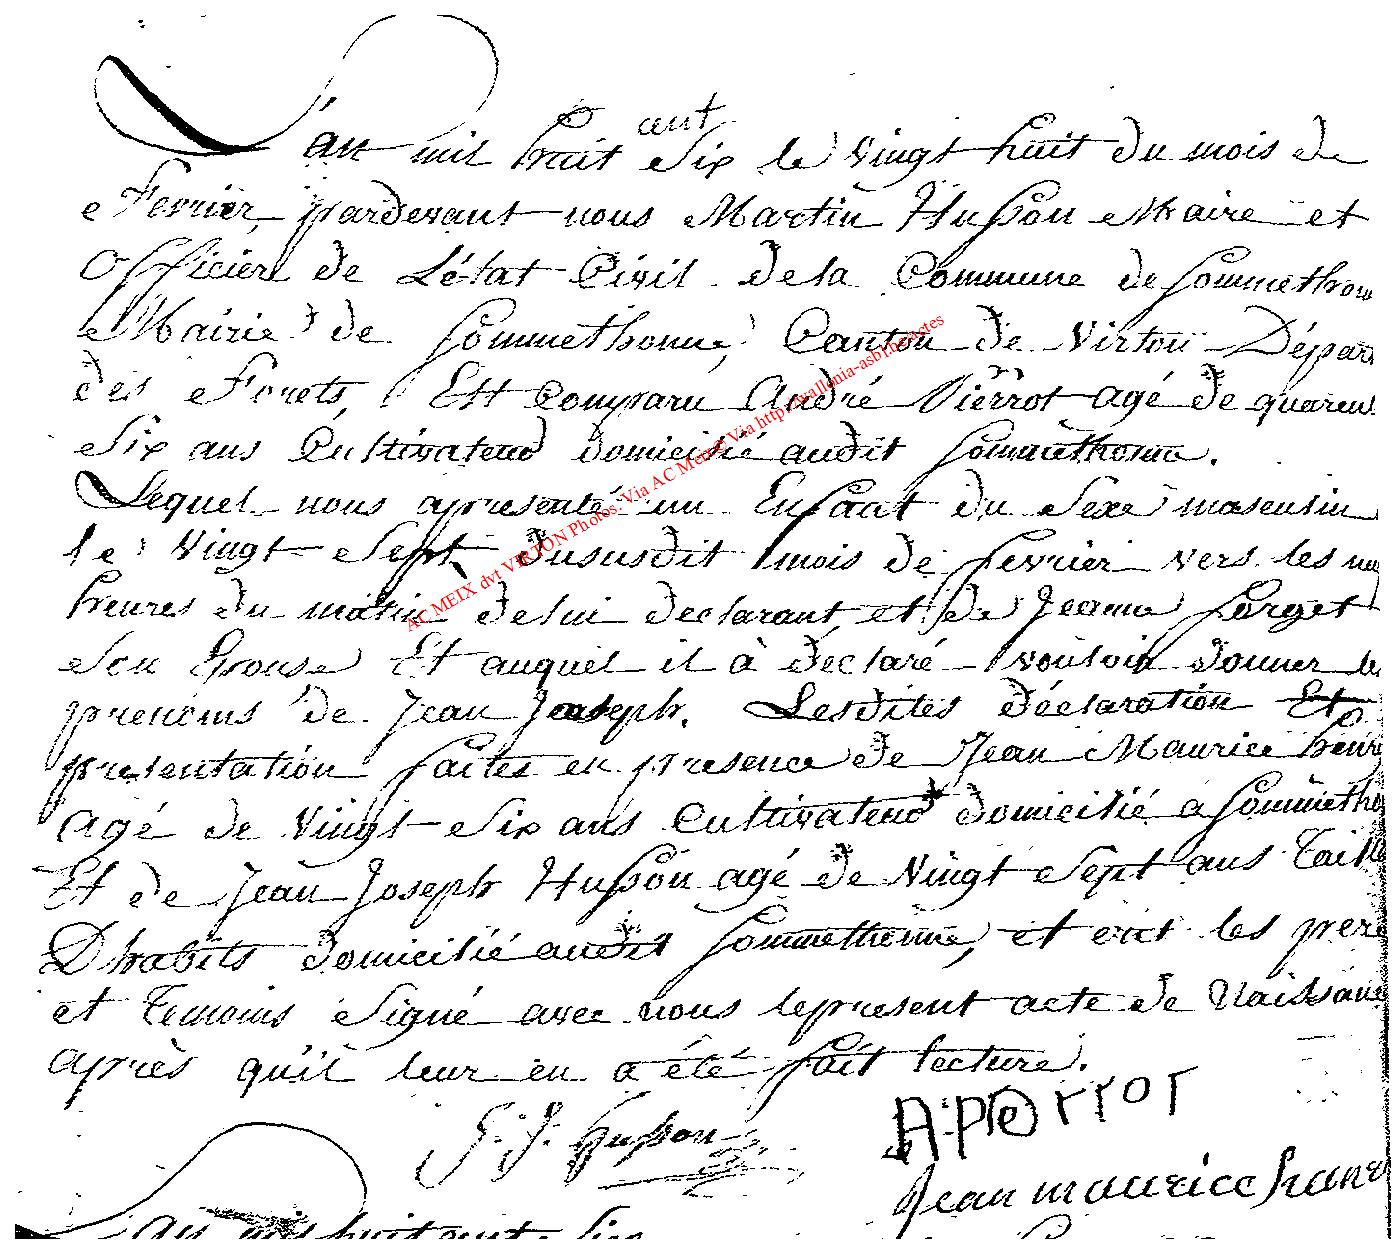 L'an mil huit cent six le vingt huit du mois de
Fevrier, pardevant nous Martin Husson Maire et
Officier de L'état Civil de la Commune de Sommethon
Mairie de Sommethonne, Canton de Virton Dépar
des Forets, Est Comparu André Pierrot agé de quaren
Six ans Cultivateur domicilié audit Sommethonne.
Lequel nous apresenté un Enfant du Sexe masculin
le vingt Sept dususdit mois de fevrier vers les neu
heures du matin delui declarant et de Jeanne Forget
Son Epouse Et auquel il à declaré vouloir donner les
prenoms de Jean Joseph. Lesdites déclaration Et
presentation faites en presence de Jean Maurice
agé de Vingt Six ans Cultivateur domicilié a Sommetho
Et de Jean Joseph Husson agé de Vingt Sept ans Taille
Dhabits domicilié audit Sommethonne, et ont les pere
et Temoins Signé avec nous lepresent acte de Naissance
après qu'il leur en a été fait lecture.
J. J. Husson
A Pierrot
Jean maurice
L'an mil huit cent Six
AC MEIX dvt VIRTON Photos: Via AC Menu: Via http://wallonia-asbl.net/actes